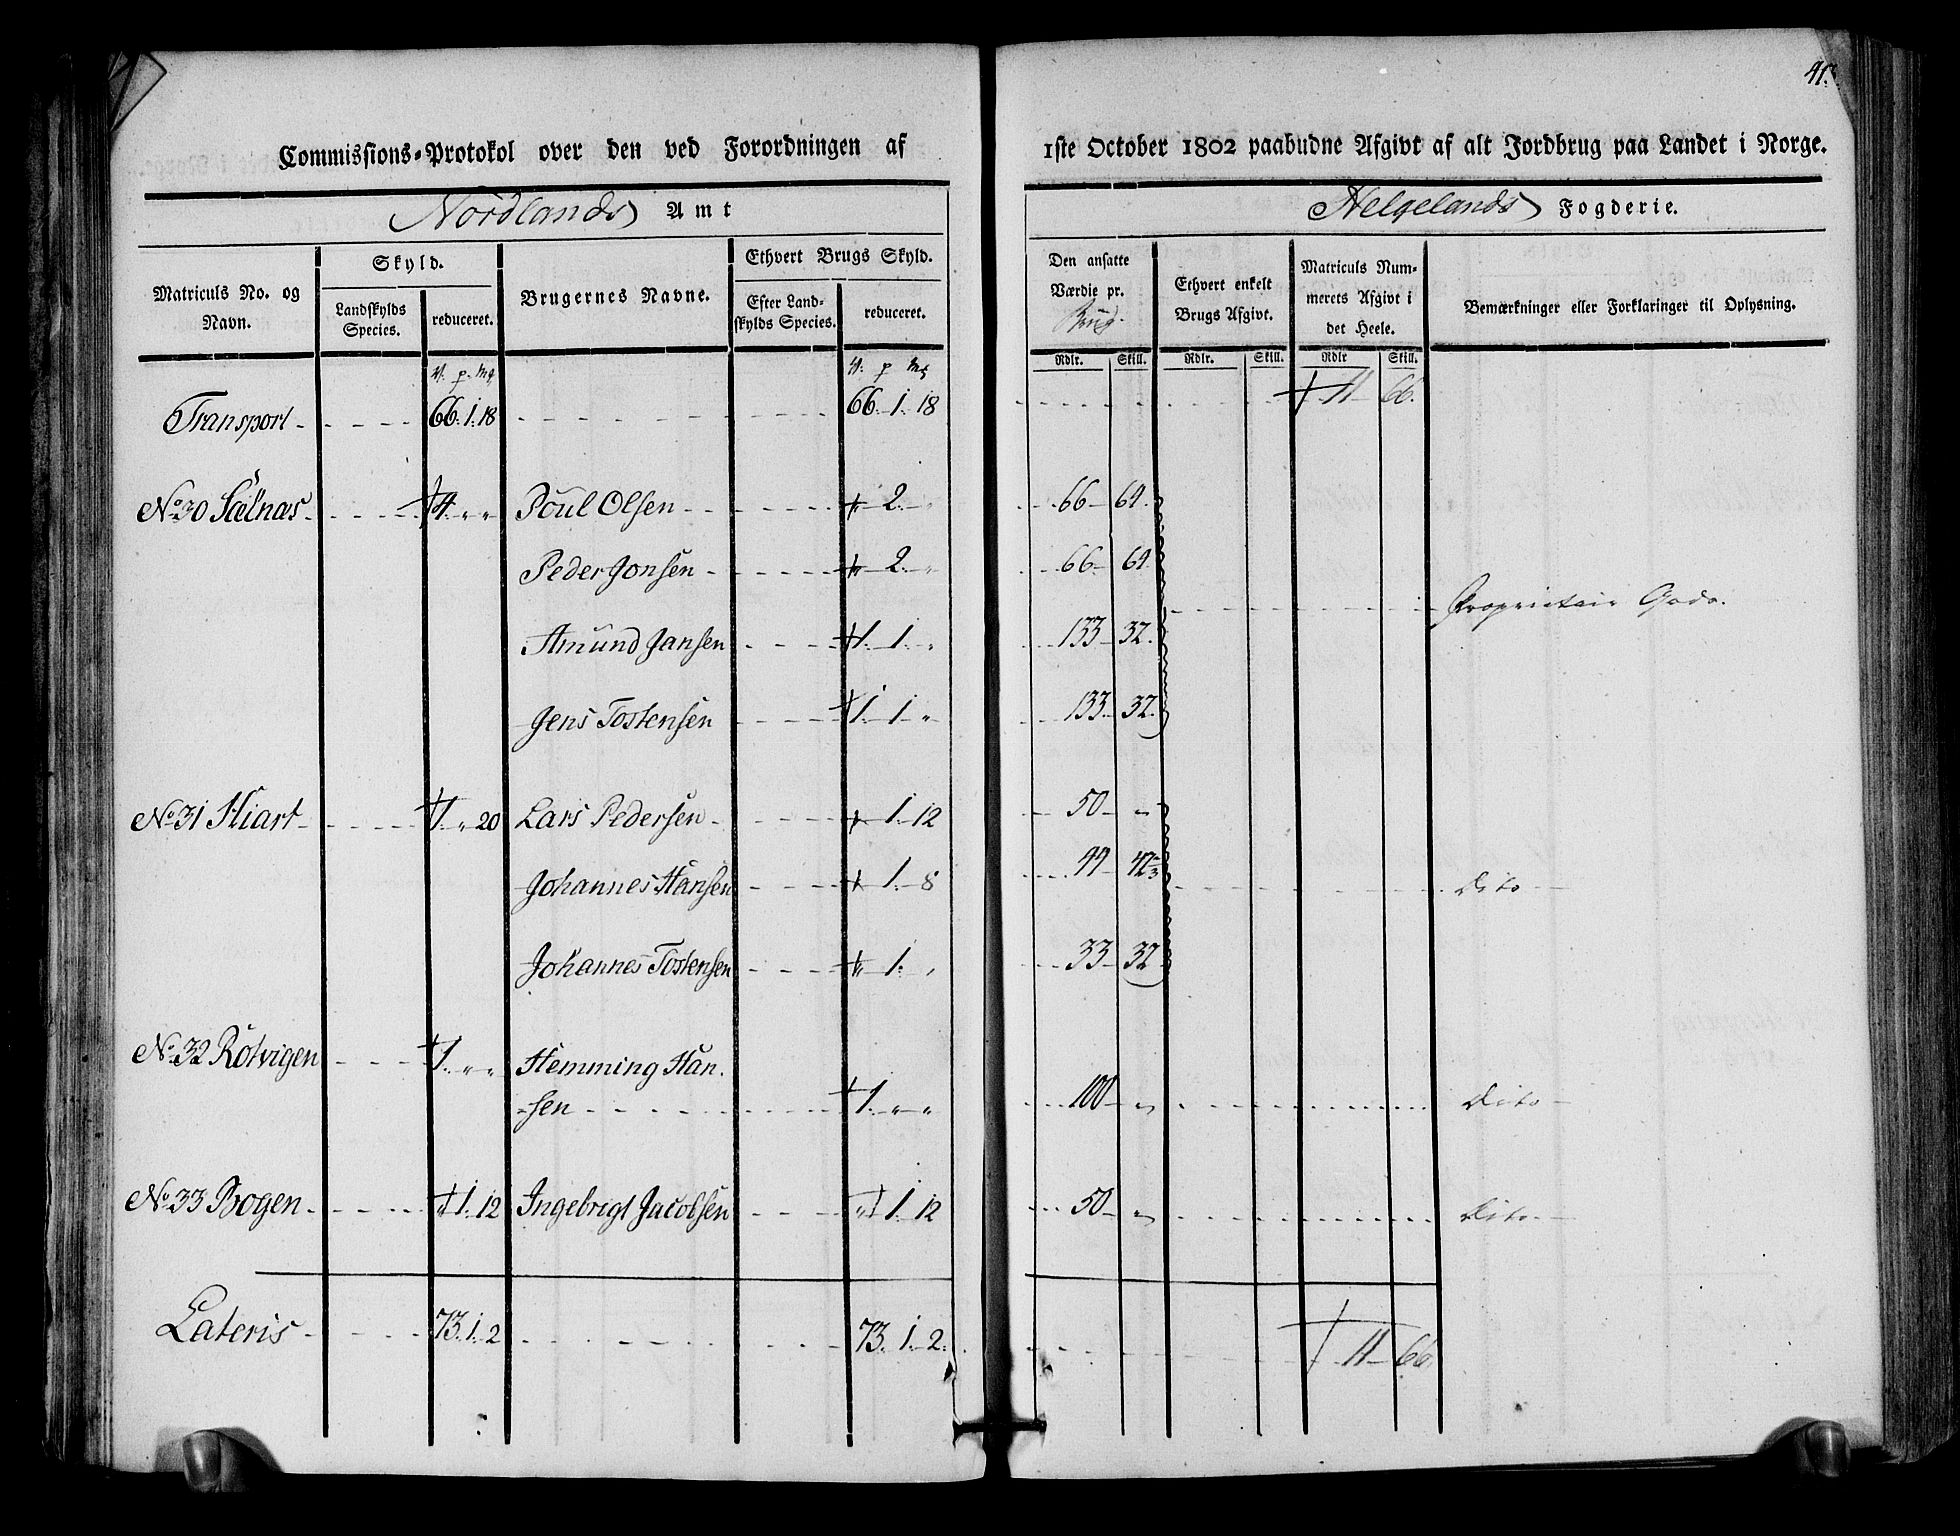 41.
Commissions-Protokol over den ved Forordningen af 1ste October 1802 paabudne Afgivt af alt Jordbrug paa Landet i Norge.
Nordlands Amt Helgelands Fogderie.
Matriculs No. og Navn. Skyld. Landskylds Species. reduceret. Brugernes Navne. Ethvert Brugs Skyld. Efter Landskylds Species. reduceret. Den ansatte Værdie pr. Brug. Ethvert enkelt Brugs Afgivt. Matriculs Nummerets Afgivt i det Heele. Bemærkninger eller Forklaringer til Oplysning.
V. p. Mk V. p Mk Rdlr. Skill. Rdlr. Skill. Rdlr Skill.
Transport 66. 1. 18 66. 1. 18 11 66.
No 30 Sælnæs 4. " " Poul Olsen " 2. " 66 64.
Peder Jonsen " 2. " 66 64.
Proprietair Gods.
Amund Jansen 1. 1. " 133 32.
Jens Tostensen 1. 1. " 133. 32.
No 31 Hiart 1. " 20 Lars Pedersen " 1. 12 50 "
Johannes Hansen " 1. 8 44 42 2/3 Dito
Johannes Tostensen " 1. " 33 32
No 32 Rotvigen 1. " " Hemming Han-
sen 1. " " 100 " Dito
No 33 Bogen " 1. 12 Ingebrigt Jacobsen " 1. 12 50 " Dito
Lateris 73. 1. 2 73. 1. 2. 11 66.